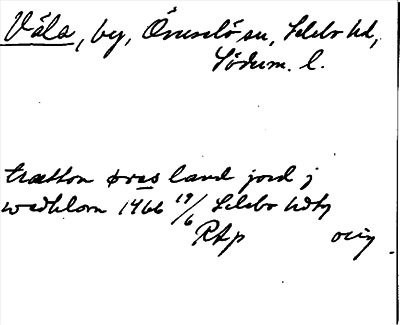 Våla, by, Överselö sn, Selebo hd,
Södum. l.
trætton øres land jord j
wedhlom 1466 19/6 Selebo hdtg
RAp orig.